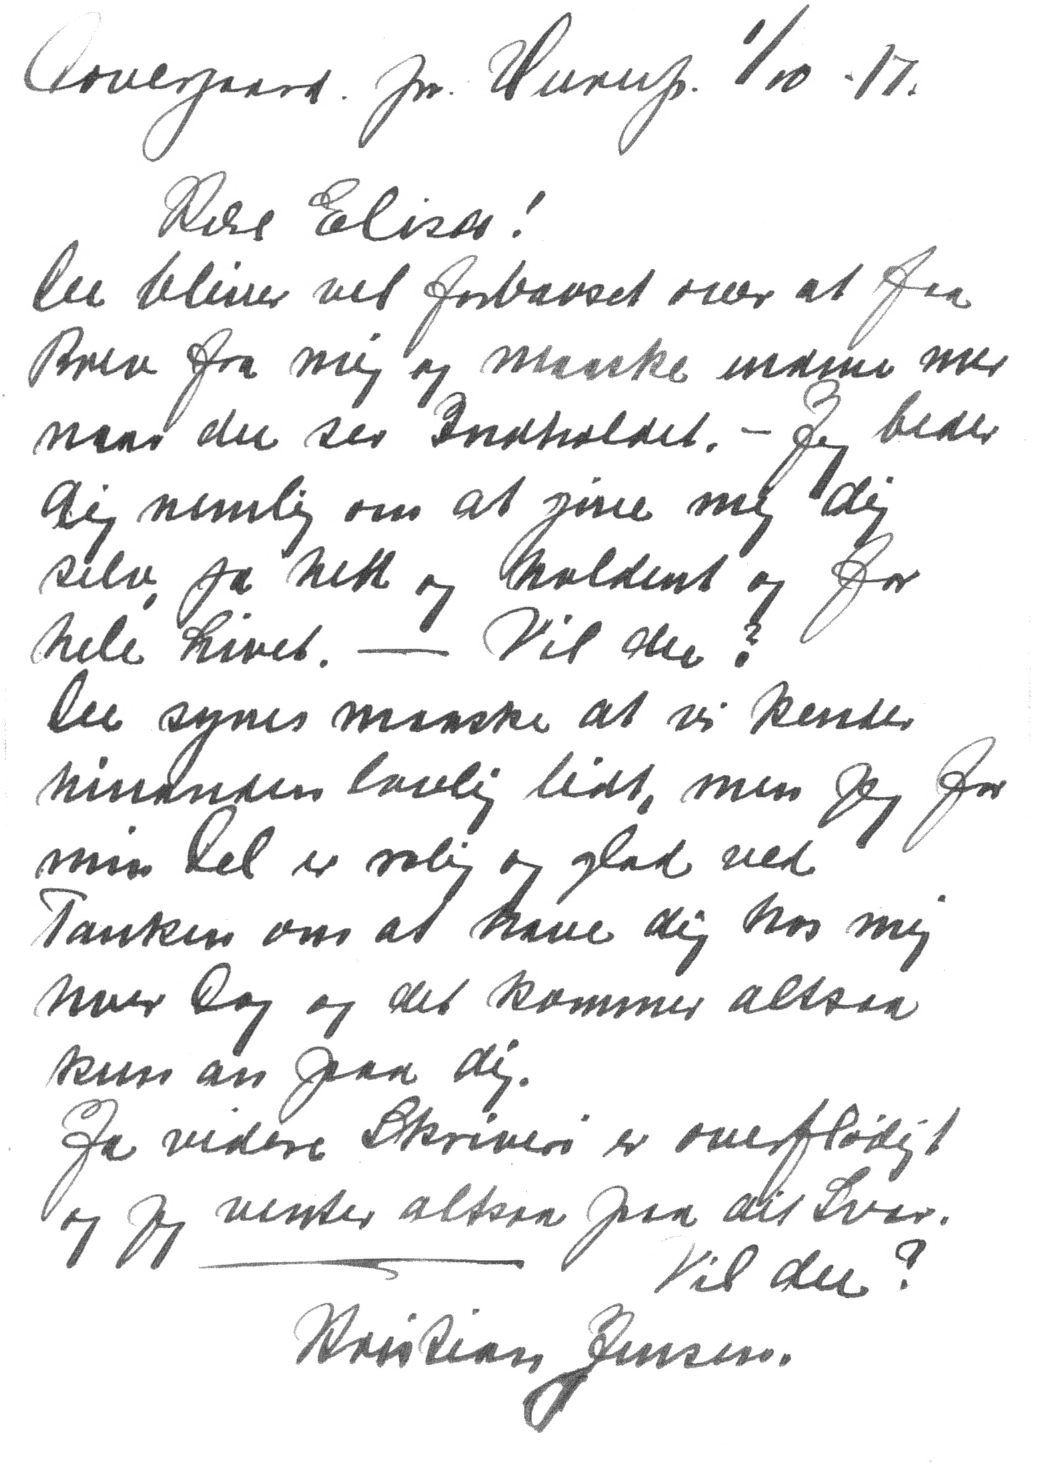 Overgaard. pr. Vivrup. 1/10 - 17.
Kære Elisa!
Du bliver vel forbavset over at faa
Brev fra mig og maaske endnu mer
naar du ser Indholdet. – Jeg beder
dig nemlig om at give mig dig
selv, ja helt og holdent og for
hele Livet. — Vil du?
Du synes maaske at vi kender
hinanden lovlig lidt, men jeg for
min Del er rolig og glad ved
Tanken om at have dig hos mig
hver Dag og det kommer altsaa
kun an paa dig.
Ja videre Skriveri er overflødigt
og jeg venter altsaa paa dit Svar.
Vil du?
Kristian Jensen.